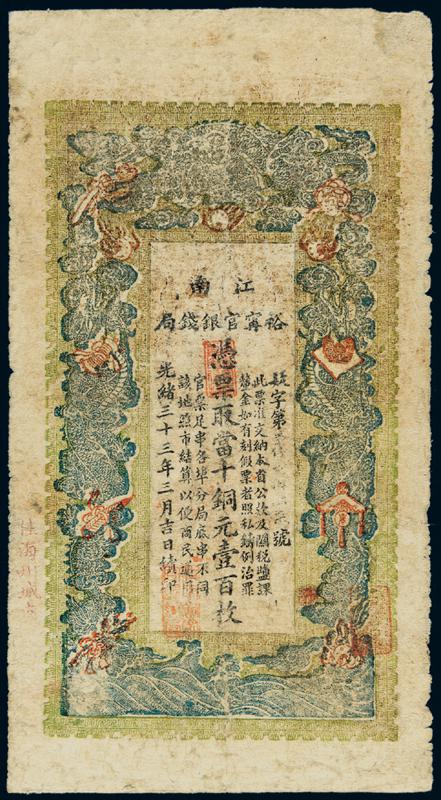 江南
裕甯官銀錢局
字第 號
此票准交納本省公款及關稅鹽課
釐金如有刻假票者照私鑄例治罪
憑票取當十銅元壹百枚
官票足串各埠分局底串不同
該地照市結算以便商民通用
光緒三十三年三月吉日